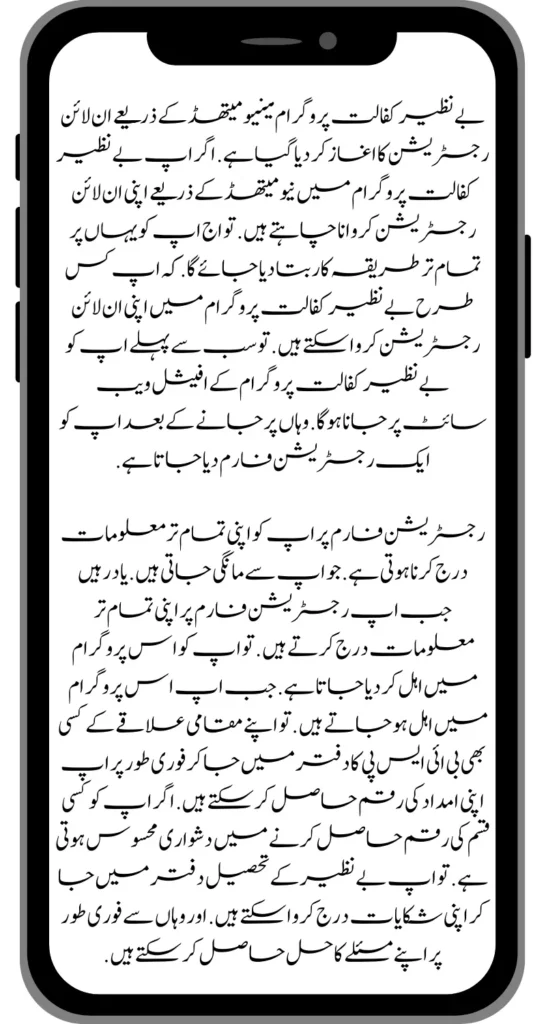 بے نظیر کفالت پروگرام مینیو میتھڈ کے ذریعے ان لائن
رجسٹریشن کا اغاز کر دیا گیا ہے. اگر اپ بے نظیر
کفالت پروگرام میں نیو میتھڈ کے ذریعے اپنی ان لائن
رجسٹریشن کروانا چاہتے ہیں. تو اج اپ کو یہاں پر
تمام تر طریقہ کار بتا دیا جائے گا. کہ اپ کس
طرح بے نظیر کفالت پروگرام میں اپنی ان لائن
رجسٹریشن کروا سکتے ہیں. تو سب سے پہلے اپ کو
بے نظیر کفالت پروگرام کے افیشل ویب
سائٹ پر جانا ہوگا. وہاں پر جانے کے بعد اپ کو
ایک رجسٹریشن فارم دیا جاتا ہے.
رجسٹریشن فارم پر اپ کو اپنی تمام تر معلومات
درج کرنا ہوتی ہے. جو اپ سے مانگی جاتی ہیں. یاد رہیں
جب اپ رجسٹریشن فارم پر اپنی تمام تر
معلومات درج کرتے ہیں. تو اپ کو اس پروگرام
میں اہل کر دیا جاتا ہے. جب اپ اس پروگرام
میں اہل ہو جاتے ہیں. تو اپنے مقامی علاقے کے کسی
بھی بی ائی ایس پی کا دفتر میں جا کر فوری طور پر اپ
اپنی امداد کی رقم حاصل کر سکتے ہیں. اگر اپ کو کسی
قسم کی رقم حاصل کرنے میں دشواری محسوس ہوتی
ہے. تو اپ بے نظیر کے تحصیل دفتر میں جا
کر اپنی شکایات درج کروا سکتے ہیں. اور وہاں سے فوری طور
پر اپنے مسئلے کا حل حاصل کر سکتے ہیں.